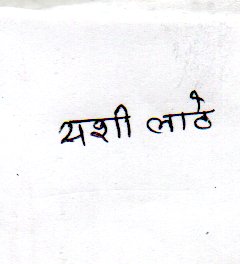 यशी लाठे